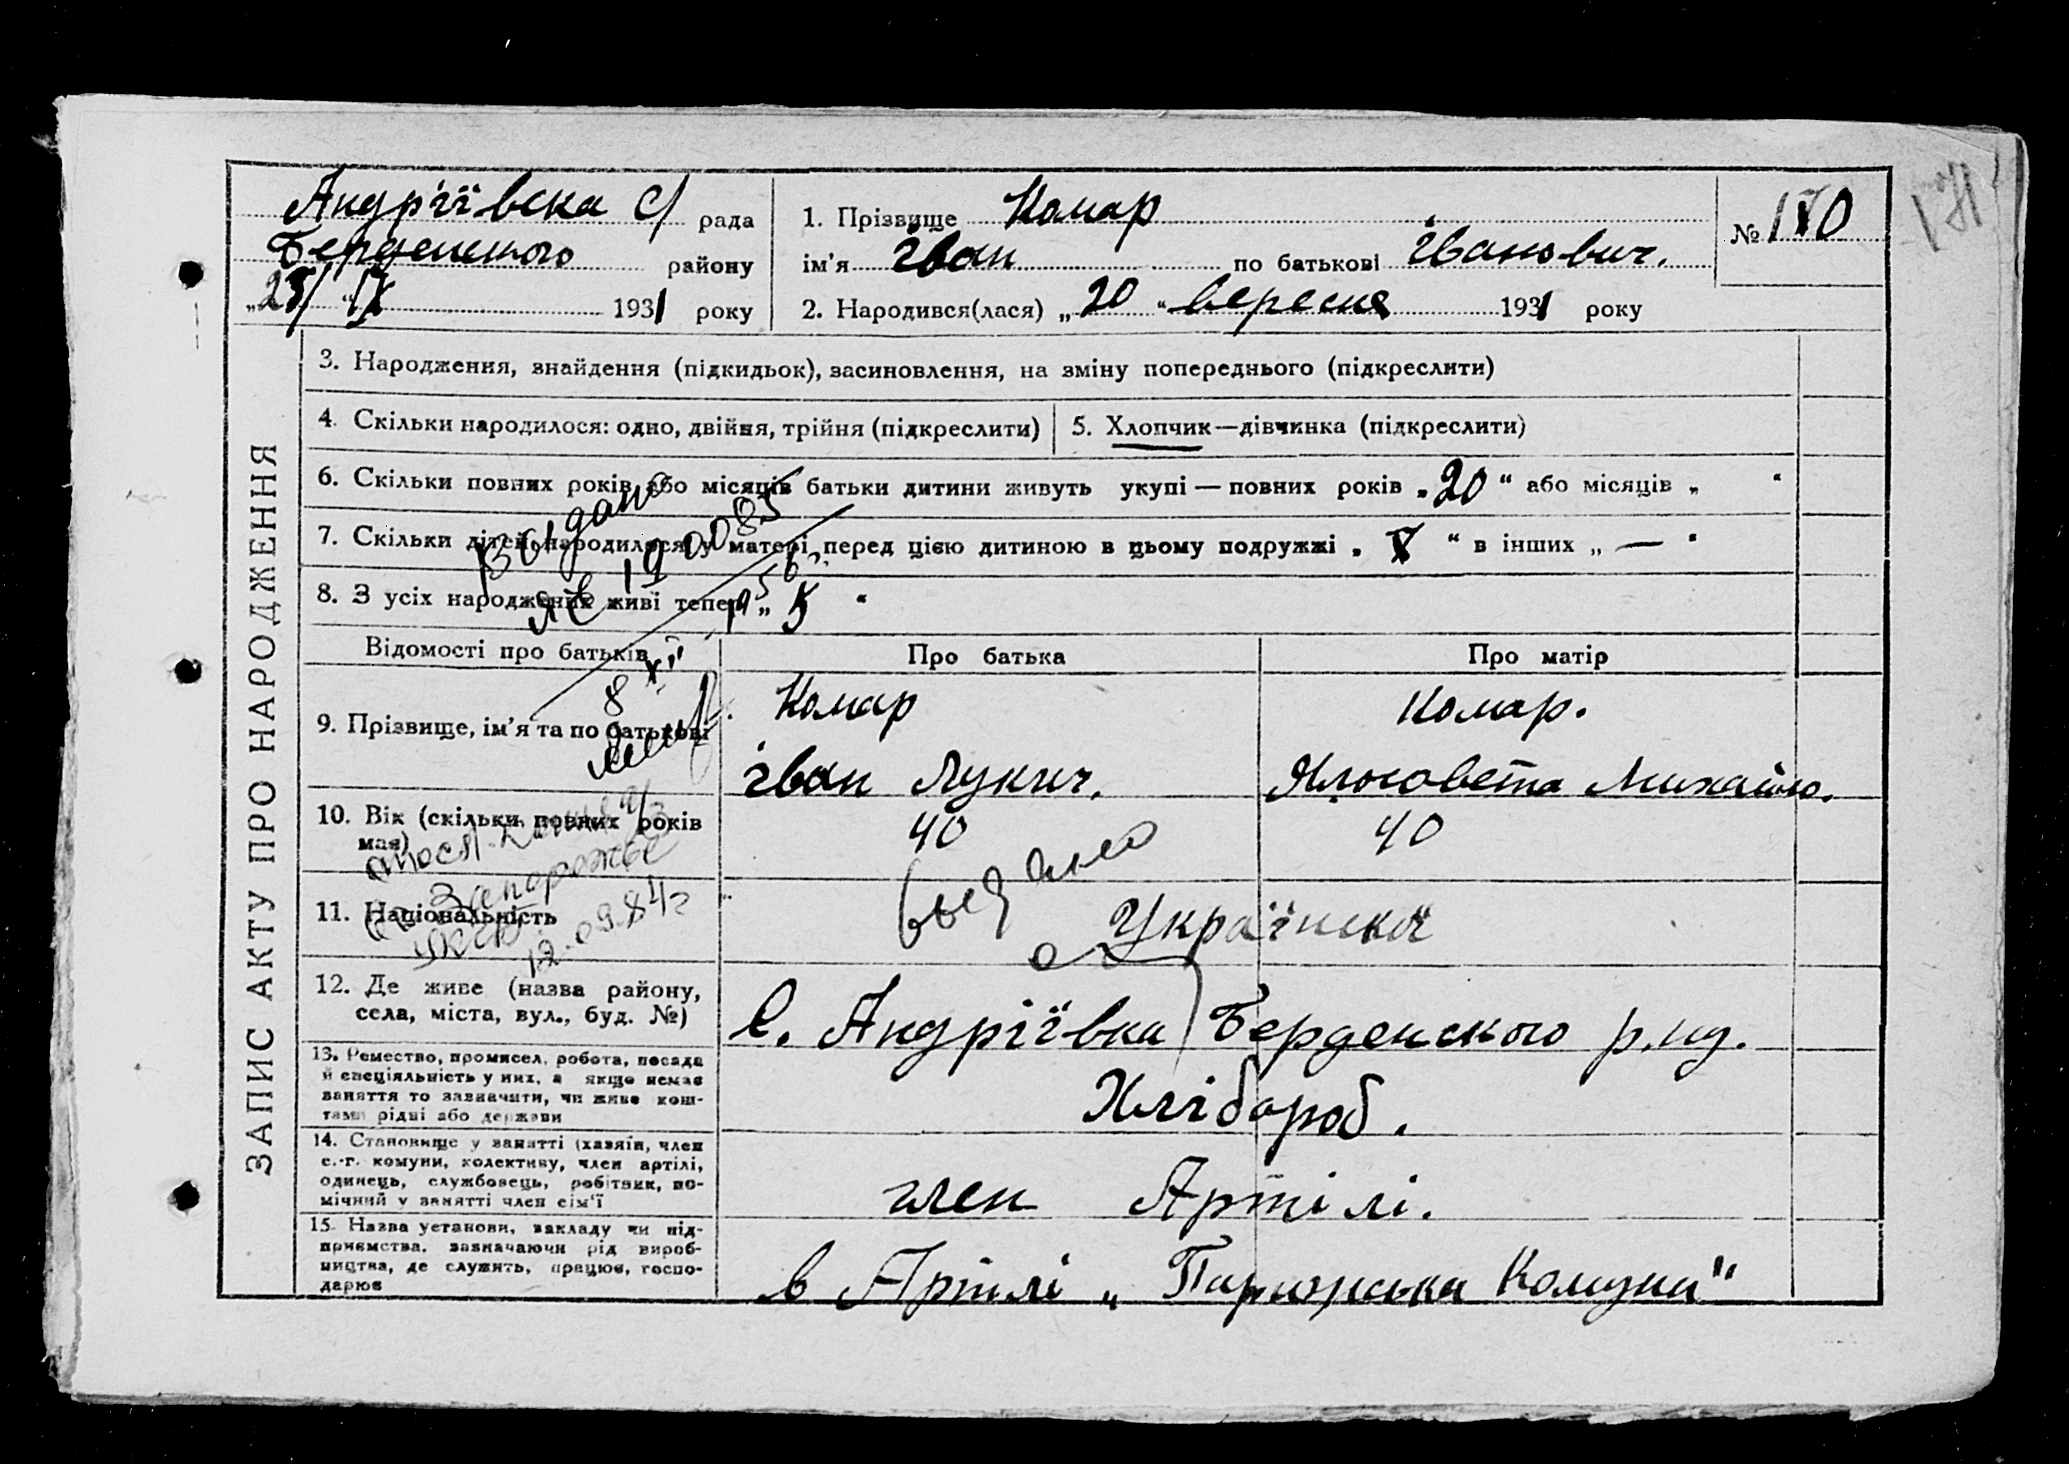 Андріївска с/ рада
Берденського району
„23/ “ IX 1931 року
1. Прізвище Комар
ім’я Іван по батькові Іванович.
2. Народився(лася) „20“ вересня 1931 року
№ 170
ЗАПИС АКТУ ПРО НАРОДЖЕННЯ
3. Народження, знайдення (підкидьок), засиновлення, на зміну попереднього (підкреслити)
4. Скільки народилося: одно, двійня, трійня (підкреслити)
5. Хлопчик—дівчинка (підкреслити)
6. Скільки повних років або місяців батьки дитини живуть укупі — повних років „20“ або місяців „ “
7. Скільки дітей народилося у матері перед цією дитиною в цьому подружжі „V“ в інших „—“
8. З усіх народжених живі тепер „5“
Выдано
19
56
8 XII
Відомості про батьків
Про батька
Про матір
9. Прізвище, ім’я та по батькові
Комар
Іван Лукич.
Комар.
Ялосовета Михайло.
10. Вік (скільки повних років має)
40
40
Запорожье
12.09.84г
11. Національність
Українська
12. Де живе (назва району,
села, міста, вул., буд. №)
С. Андріївка Берденського р.
13. Ремество, промисел, робота, посада
й спеціяльність у них, а якщо немає
заняття то зазначити, чи живе кош-
тами рідні або держави
Хлібороб.
14. Становище у занятті (хазяїн, член
с.-г. комуни, колективу, член артілі,
одинець, службовець, робітник, по-
мічний у занятті член сім’ї
член Артілі.
15. Назва установи, закладу чи під-
приємства, зазначаючи рід вироб-
ництва, де служить, працює, госпо-
дарює
в Артілі „Парижська Комуна“